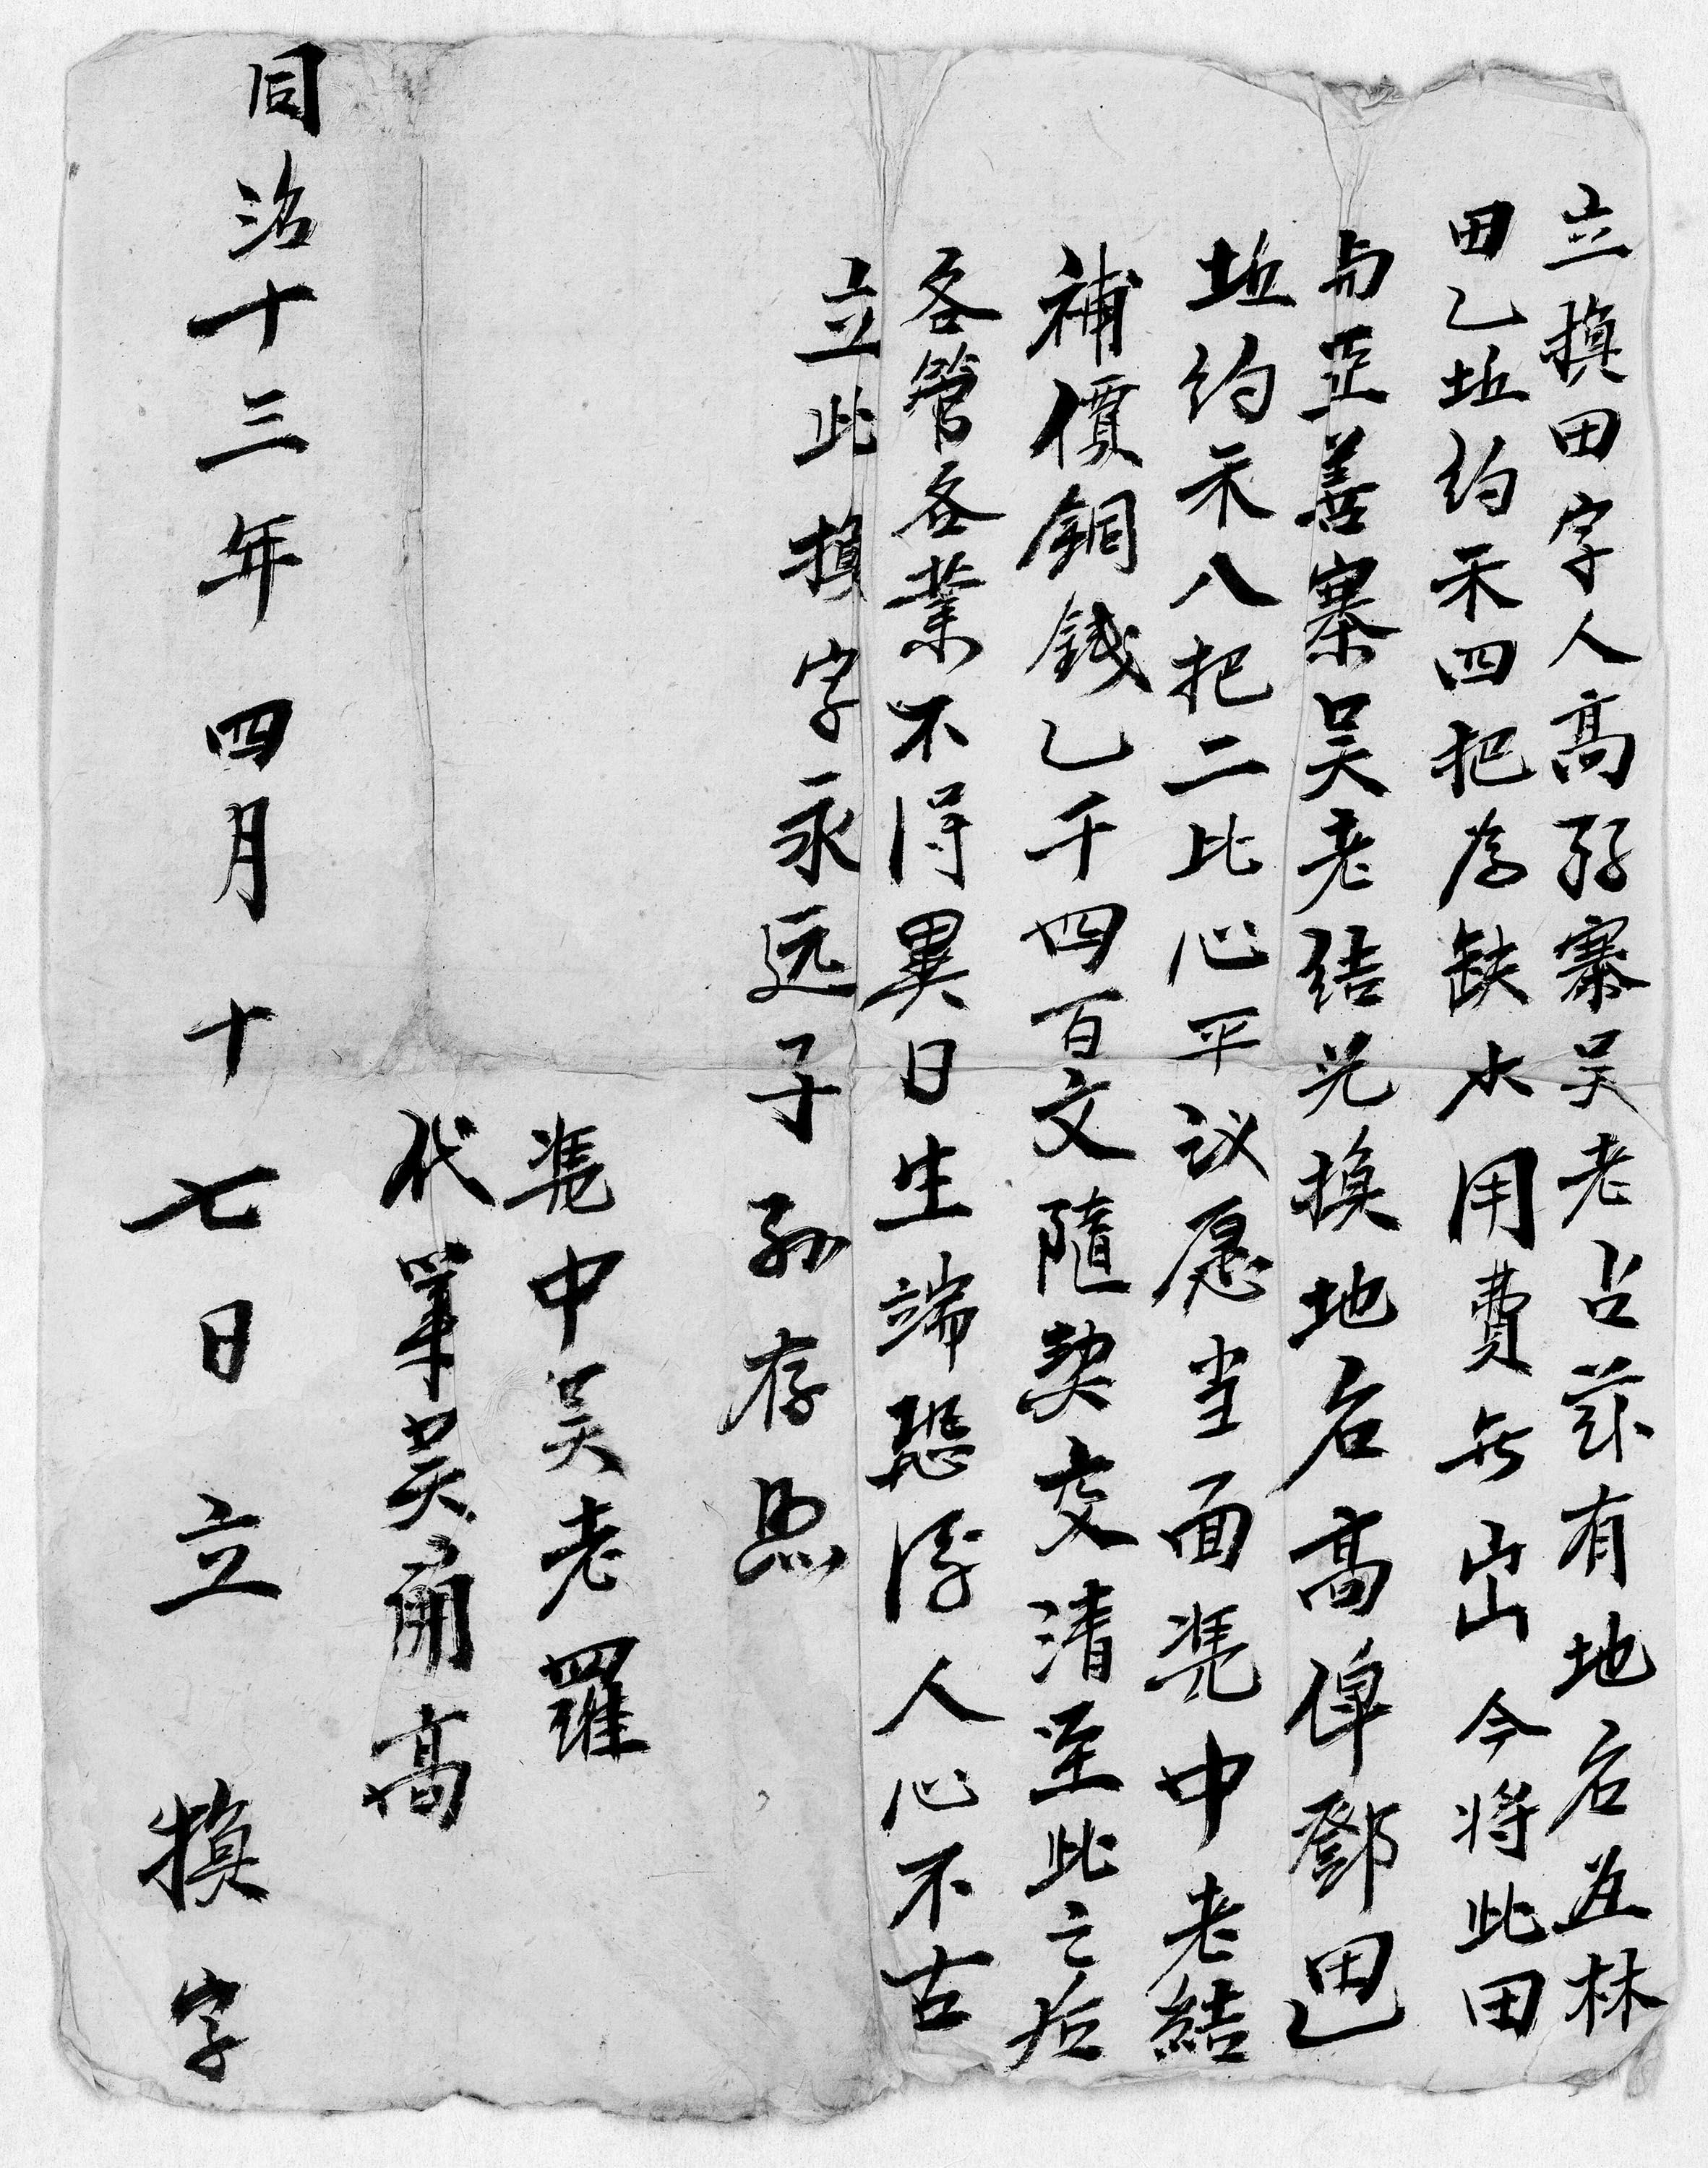 立換田字人高孖寨吴老占茲有地名並林
田乙坵約禾四把為缺水用費無岀今将此田
与亚善寨吴老结兑換地名高俾鄧田乙
坵約禾八把二比心平议愿当面凴中老結
補價銅錢乙千四百文隨契交清至此之后
各管各業不得異日生端恐後人心不古
立此換字永远子孙存照
凴中吴老羅
代筆吴爾高
同治十三年四月十七日立換字